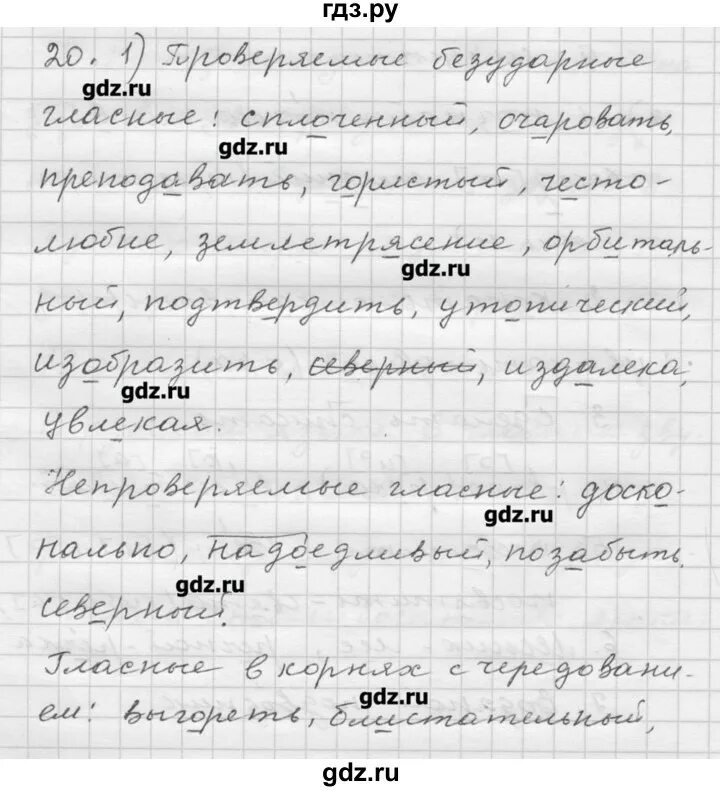 гдз.ру
20. 1) Проверяемые безударные
gdz.ru
гласные: сплоченный, очаровать,
gdz.ru
преподавать, гористый, често-
любие, землетрясение, орбиталь-
gdz.ru
ный, подтвердить, утопический,
изобразить, северный, издалека,
gdz.ru
увлекая.
Непроверяемые гласные: доско-
gdz.ru
нально, надоедливый, позабыть,
gdz.ru
северный.
Гласные в корнях с чередовани-
gdz.ru
ем: выгореть, блистательный,
gdz.ru